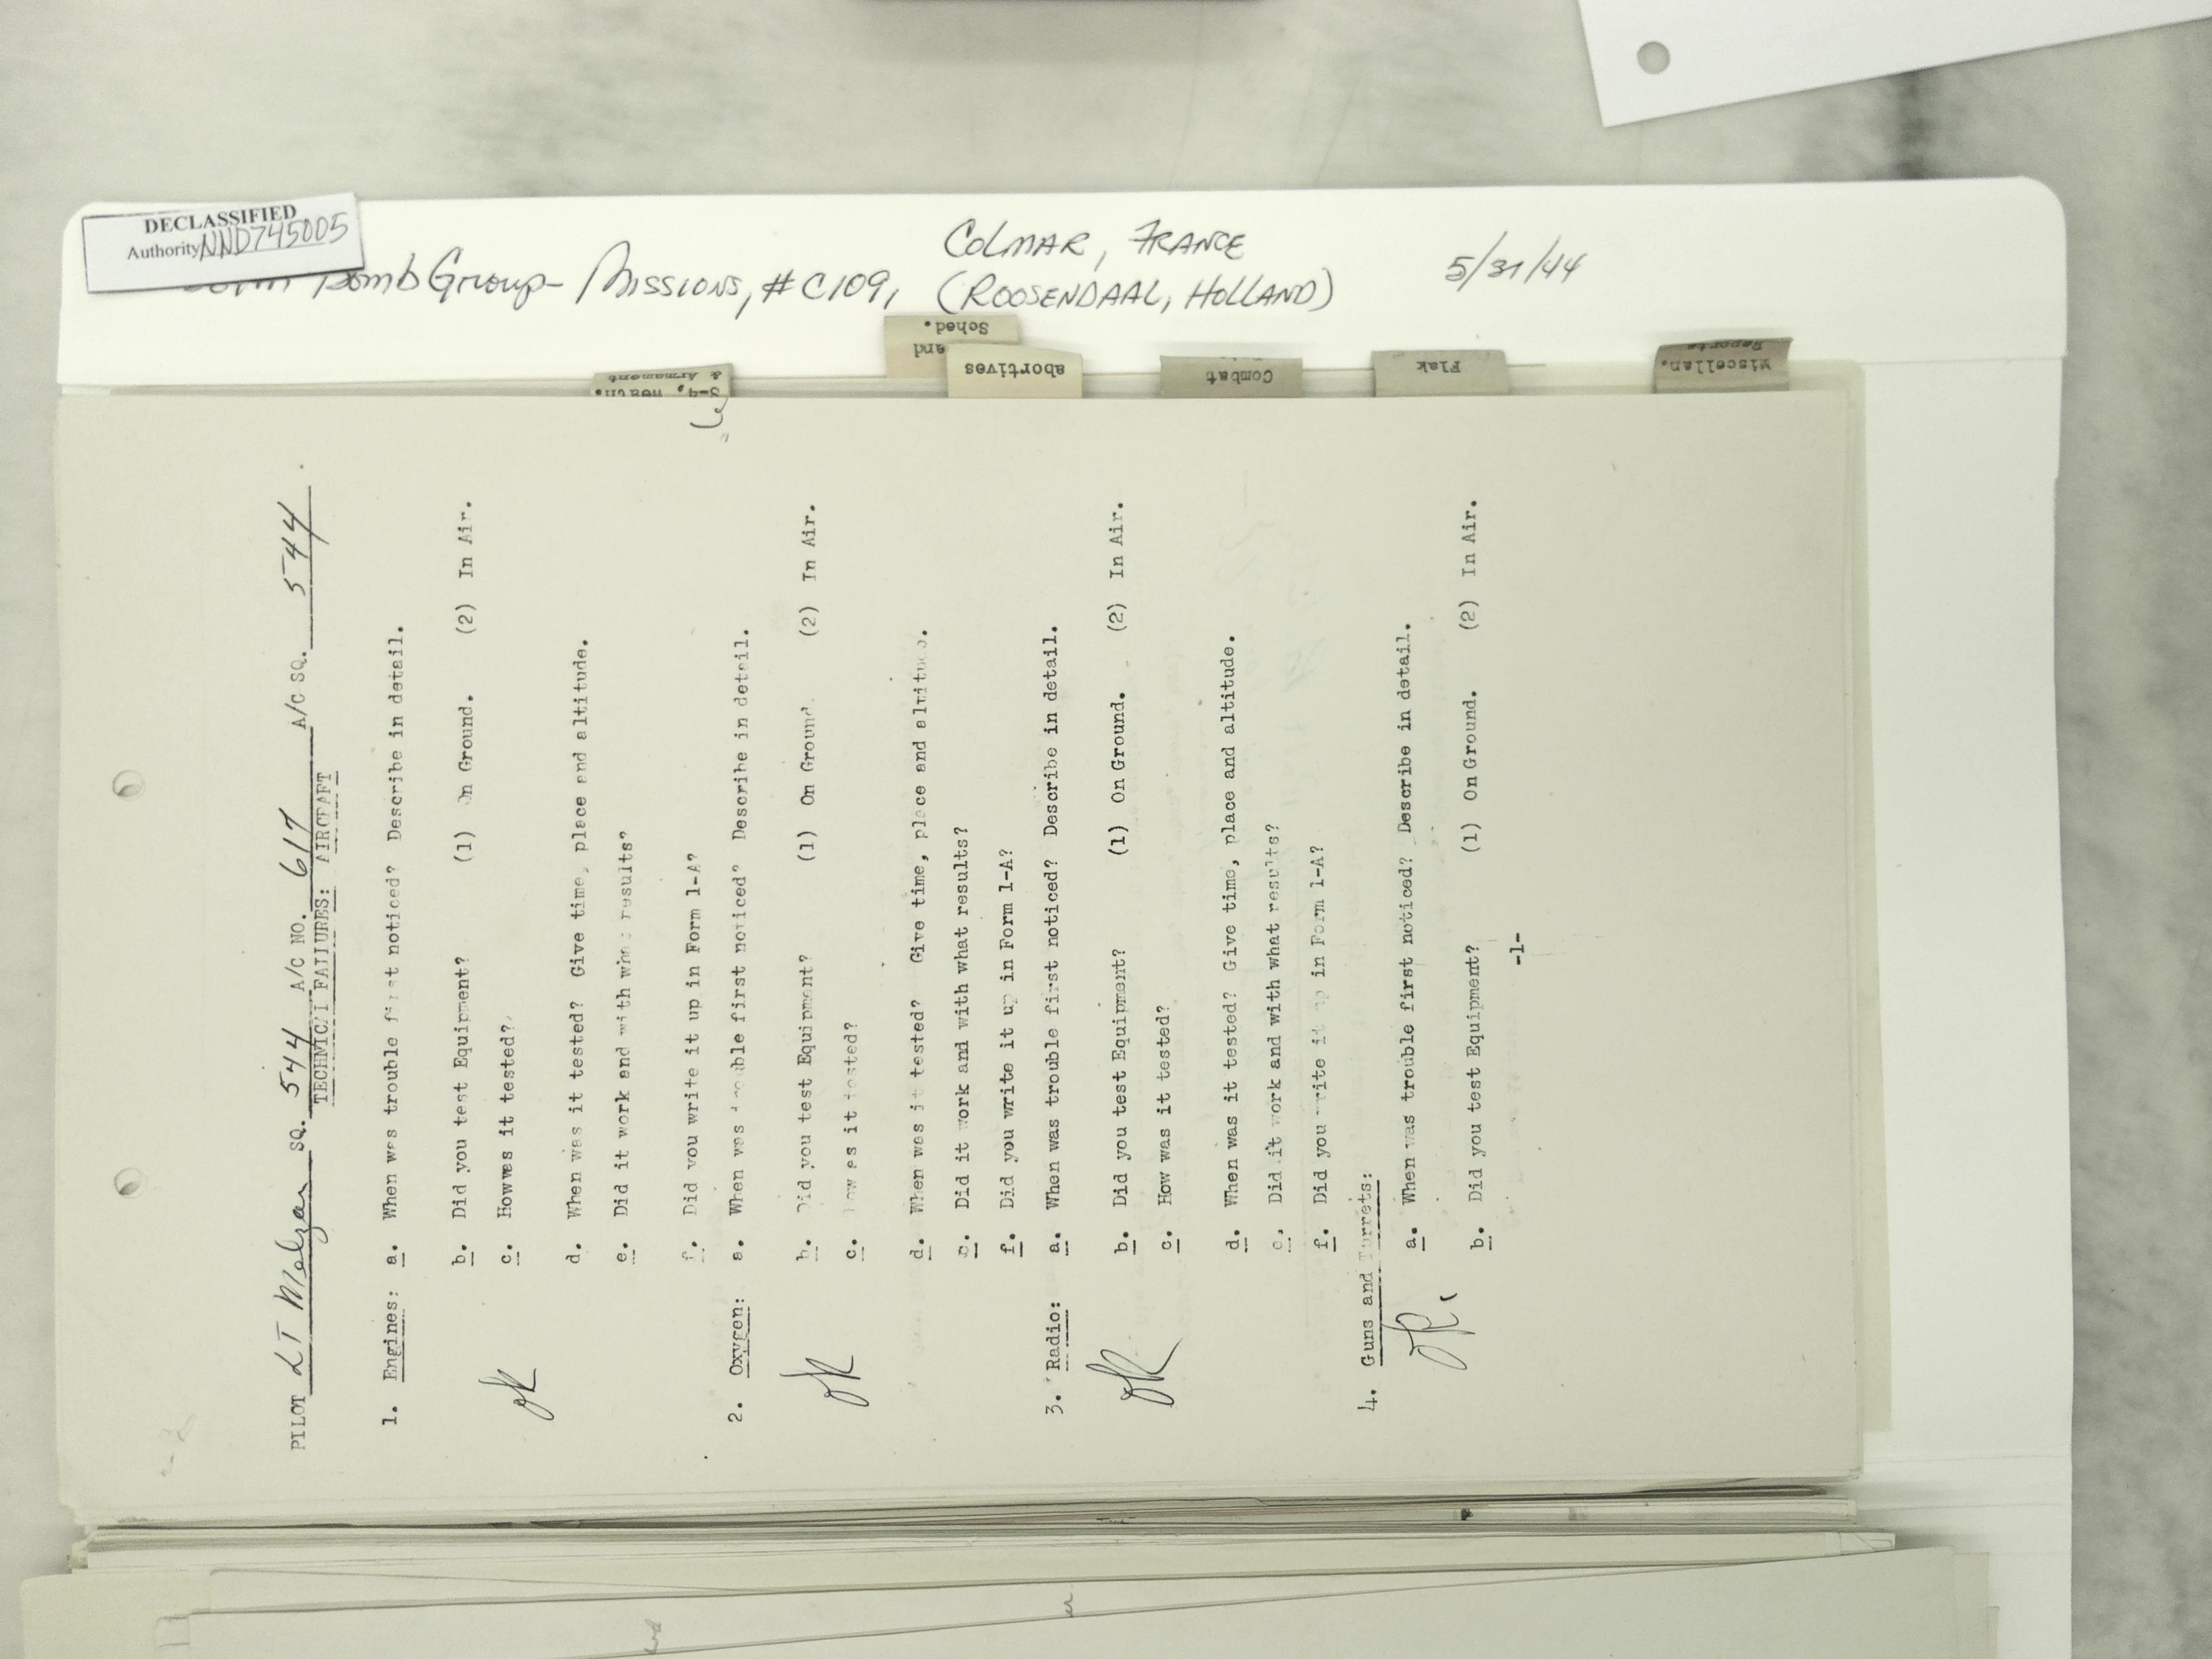 DECLASSIFIED
Authority NND745005
Bomb Group- Missions, #C109, COLMAR, FRANCE
(ROOSENDAAL, HOLLAND)
5/31/44
& Armament
and
Sched.
abortives
Combat
Flak
Miscellan.
Reports
PILOT LT SQ. 544 A/C NO. 617 A/C SQ. 544
TECHNICAL FAILURES: AIRCRAFT
1. Engines: a. When was trouble first noticed? Describe in detail.
b. Did you test Equipment? (1) On Ground. (2) In Air.
c. Howwas it tested?
OK
d. When was it tested? Give time, place and altitude.
e. Did it work and with what results?
f. Did you write it up in Form 1-A?
2. Oxygen: a. When was trouble first noticed? Describe in detail.
b. Did you test Equipment? (1) On Ground. (2) In Air.
c. How was it tested?
OK
d. When was it tested? Give time, place and altitude.
e. Did it work and with what results?
f. Did you write it up in Form 1-A?
3. Radio: a. When was trouble first noticed? Describe in detail.
b. Did you test Equipment? (1) On Ground. (2) In Air.
c. How was it tested?
OK
d. When was it tested? Give time, place and altitude.
e. Did it work and with what results?
f. Did you write it up in Form 1-A?
4. Guns and Turrets:
a. When was trouble first noticed? Describe in detail.
OK
b. Did you test Equipment? (1) On Ground. (2) In Air.
-1-